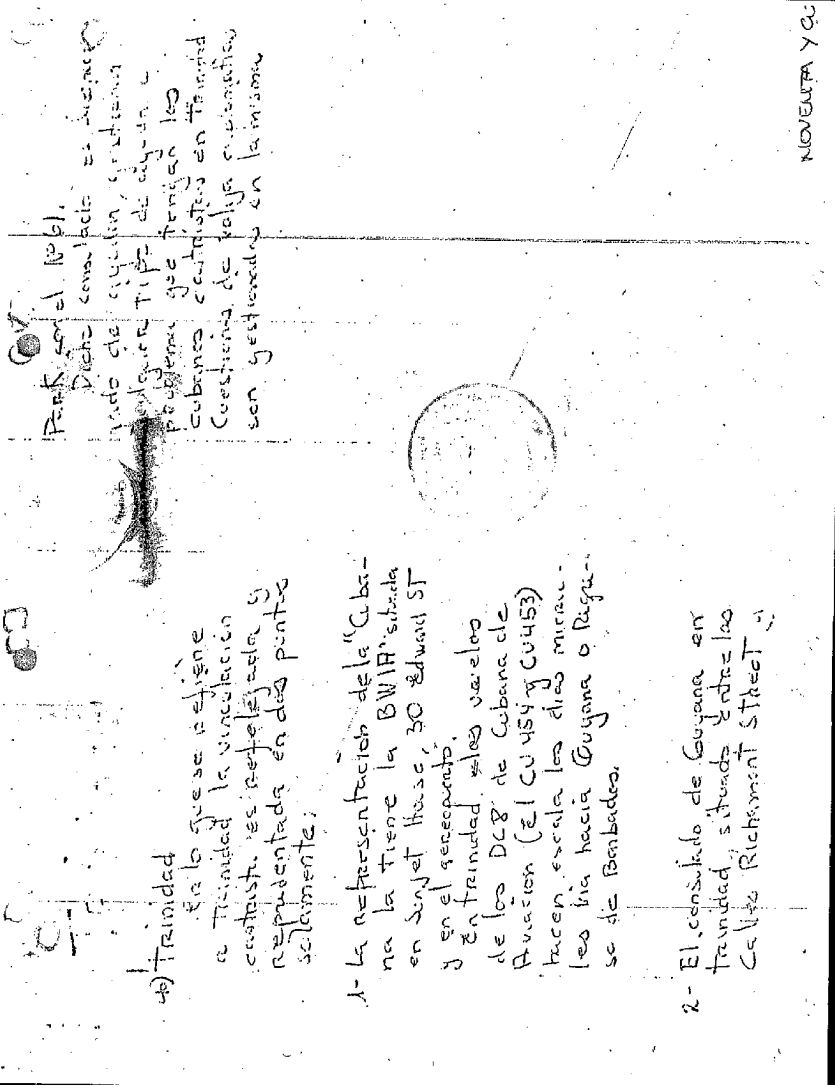 4o) Trinidad
En lo que se refiere
a Trinidad la vinculación
castrista es reflejada y
representada en dos puntos
solamente:
1- La representación de la "Cuba-
na la tiene la BWIA" situada
en Sunjet House, 30 Edward ST
y en el aereopuerto.
En Trinidad los vuelos
de los DC8 de Cubana de
Aviación (El CU 454 y CU 453)
hacen escala los días mierco-
les via hacia Guyana o Regre-
so de Barbados.
2- El consulado de Guyana en
Trinidad, situado entre las
Calles Richamont Street y
Park con el Nº 61.
Dicho consulado es
de
tipo de ayuda o
problema que tengan los
cubanos castristas en Trinidad
Cuestiones de valija diplomatica
son gestionadas en la misma
NOVENTA Y